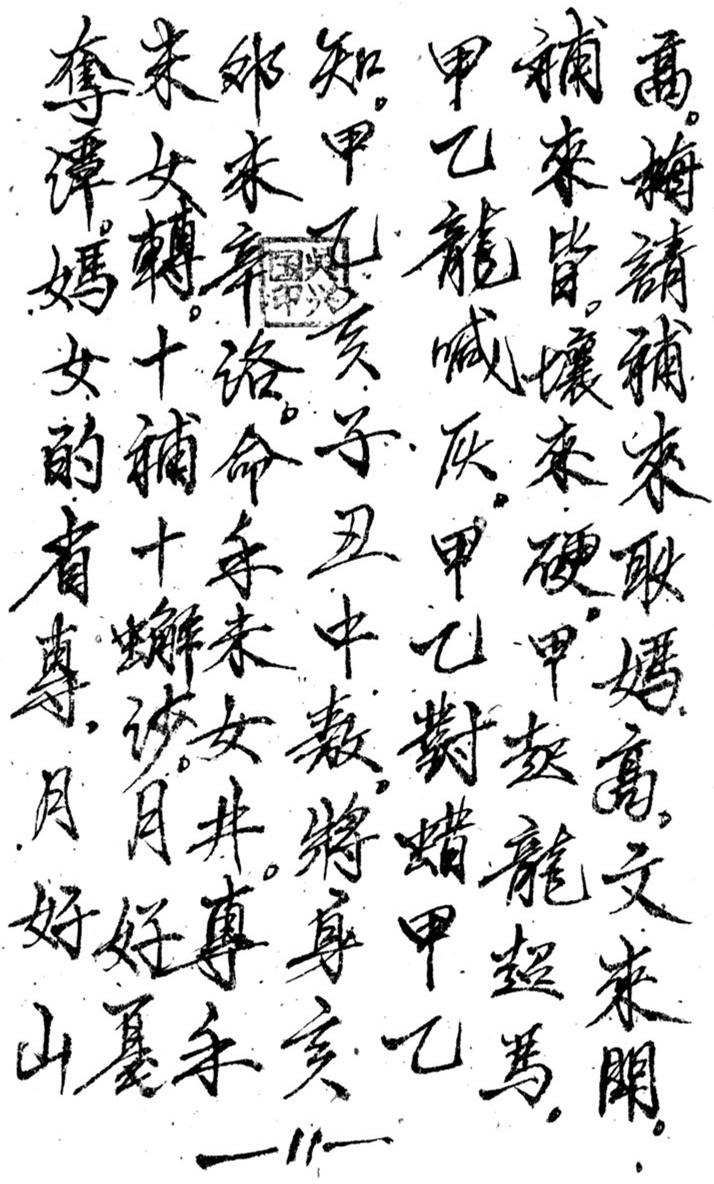 高。梅請補來取媽高。文來開。
補來皆。壞來硬。甲趕龍趕馬。
甲乙龍喊灰。甲乙對蜡甲乙
知。甲乙亥子丑中数。將身亥
郊未辛路。命未女井。專
未女轉。十補十蠏沙。月好
奪譚。媽女的省專。月好山
吴兴国印
—11—